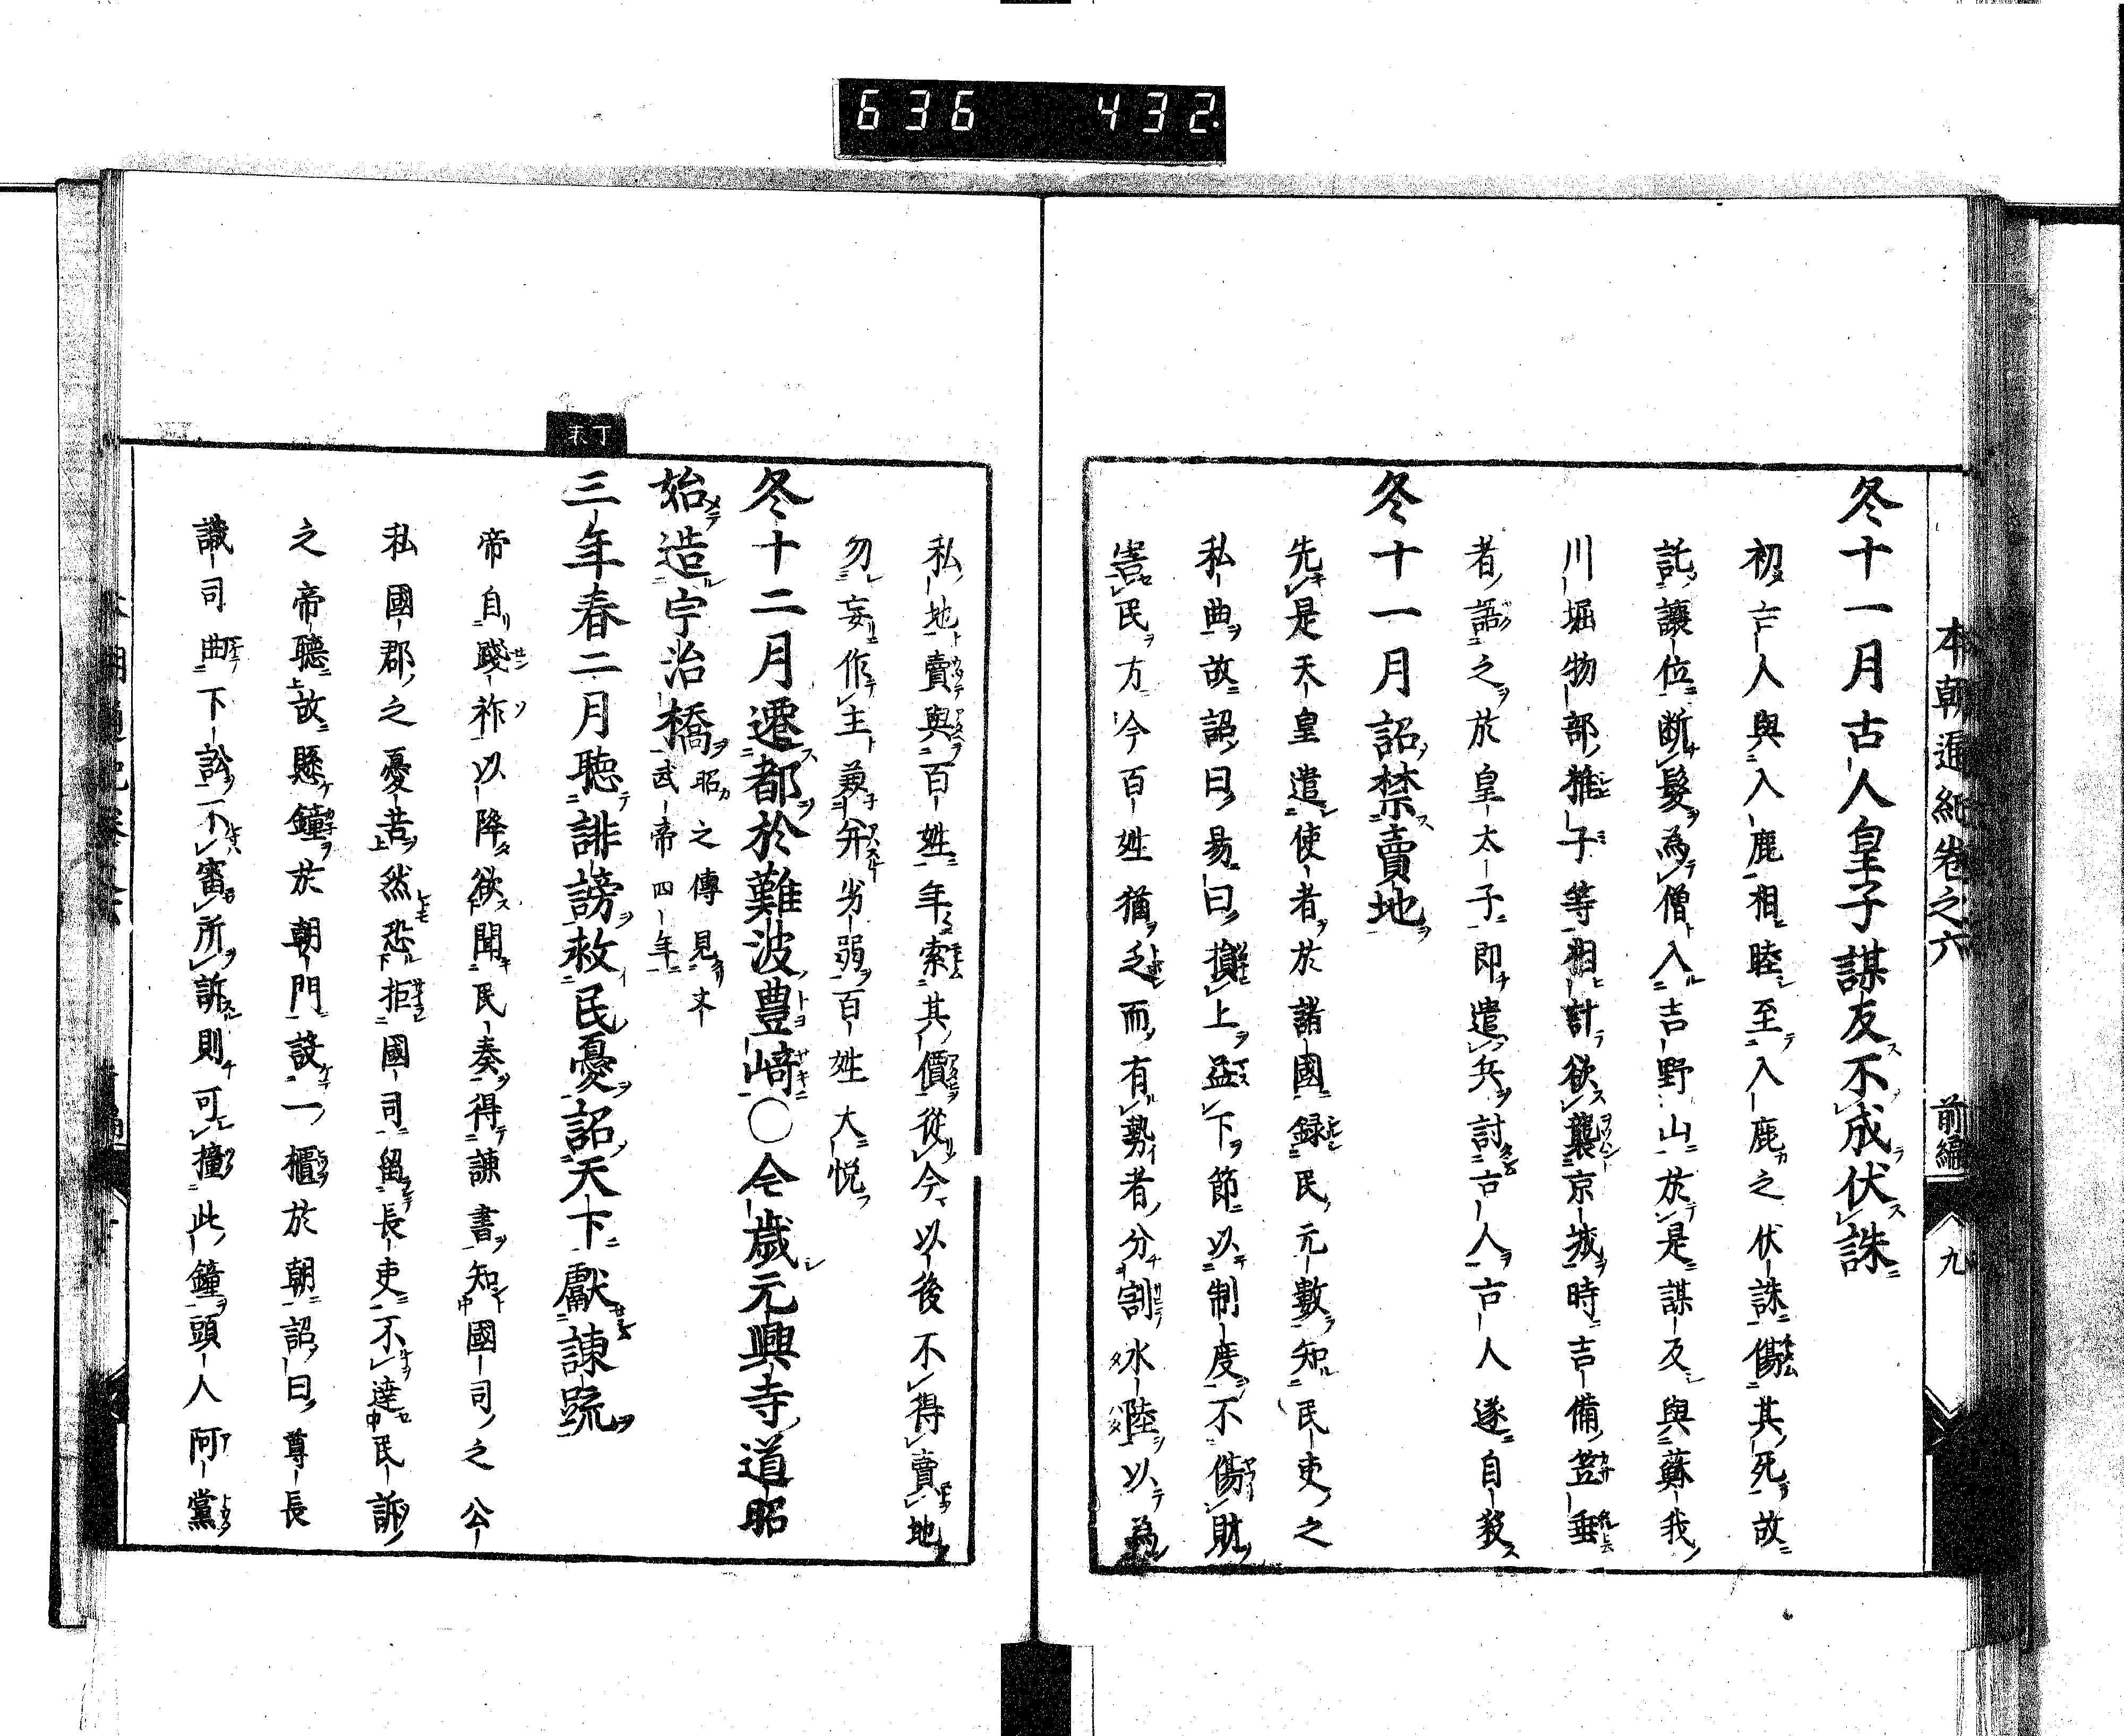 636 432
本朝通紀卷之六 前編 九
冬十一月古人皇子謀反不成伏誅
初古人與入鹿相睦至入鹿之伏誅傷其死故
託讓位断髮為僧入吉野山於是謀反與蘇我
川堀物部椎子等相計欲襲京城時吉備笠垂
者語之於皇太子即遣兵討古人古人遂自殺
冬十一月詔禁賣地
先是天皇遣使者於諸國録民元數知民吏之
私曲故詔曰易曰損上益下節以制度不傷財
害民方今百姓猶乏而有勢者分割水陸以為
私地賣與百姓年索其價從今以後不得賣地
勿妄作主兼并劣弱百姓大悦
冬十二月遷都於難波豊﨑〇今歳元興寺道昭
始造宇治橋 昭之傳見文武帝四年
丁未
三年春二月聴誹謗救民憂詔天下獻諫䟽
帝自踐祚以降欲聞民奏得諌書知國司之公
私國郡之憂苦然恐拒國司留長吏不達民訴
之帝聽故懸鐘於朝門設一櫃於朝詔曰尊長
識司曲下訟不審所訴則可撞此鐘頭人阿黨